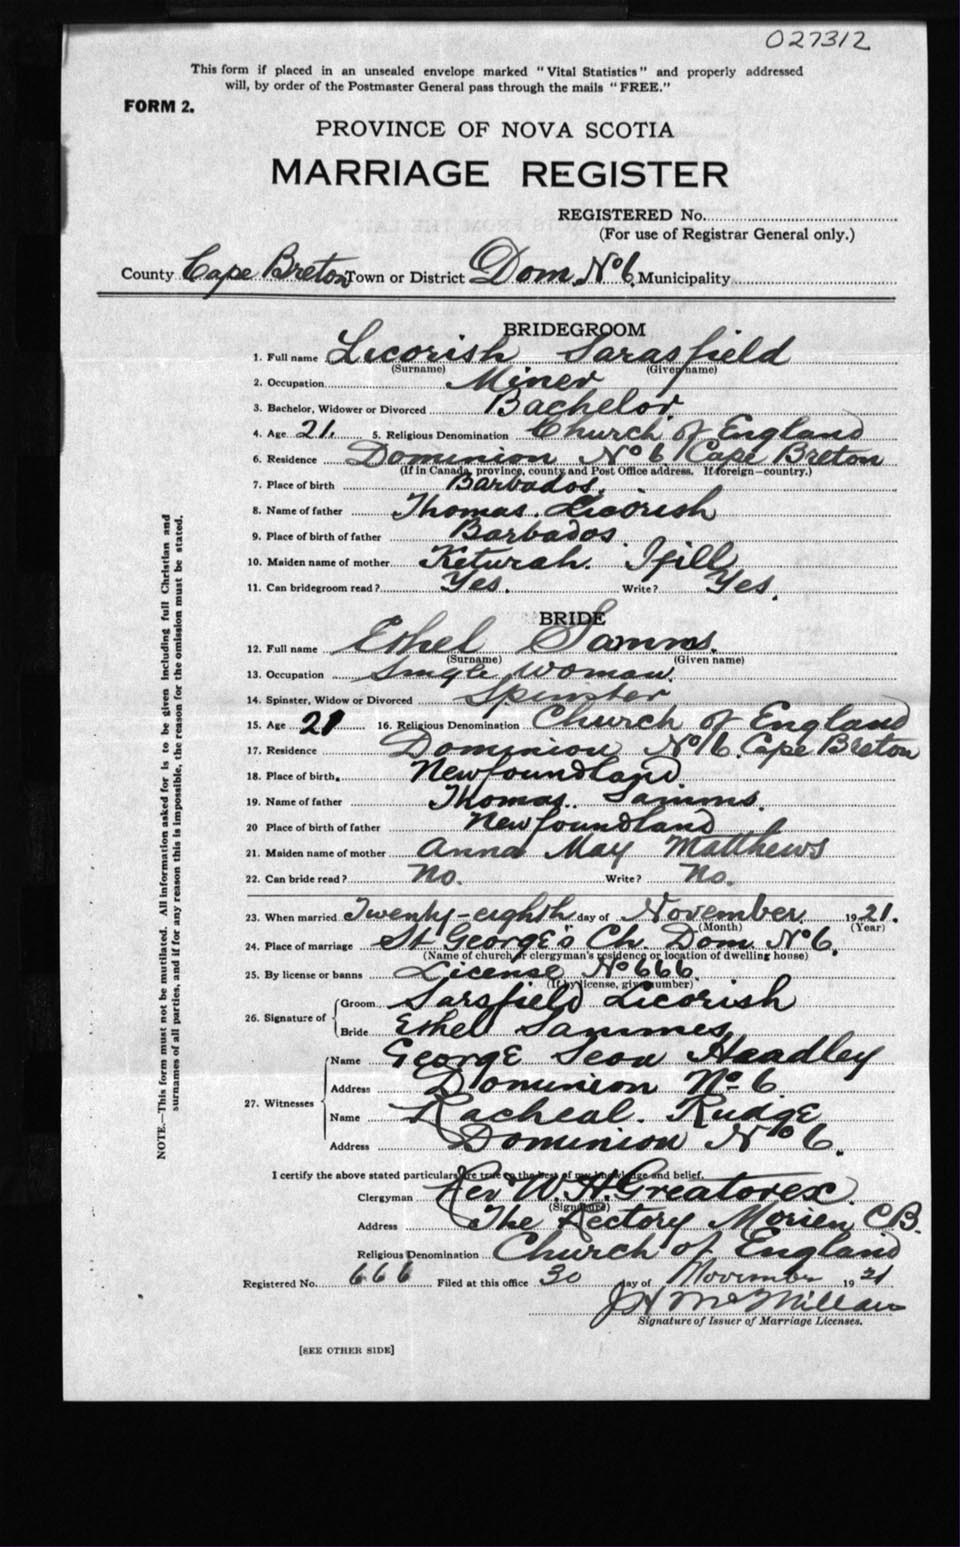 027312
This form if placed in an unsealed envelope marked "Vital Statistics" and properly addressed
will, by order of the Postmaster General pass through the mails "FREE."
FORM 2.
PROVINCE OF NOVA SCOTIA
MARRIAGE REGISTER
REGISTERED No.
(For use of Registrar General only.)
County Cape Breton Town or District Dom. No 6. Municipality
BRIDEGROOM
1. Full name Licorish Sarasfield
(Surname) (Given name)
2. Occupation Miner
3. Bachelor, Widower or Divorced Bachelor.
4. Age 21. 5. Religious Denomination Church of England
6. Residence Dominion No 6 Cape Breton
(If in Canada, province, county and Post Office address. If foreign—country.)
7. Place of birth Barbados.
8. Name of father Thomas. Licorish
9. Place of birth of father Barbados.
10. Maiden name of mother Keturah. Ifill
11. Can bridegroom read? Yes. Write? Yes.
BRIDE
12. Full name Ethel Samms.
(Surname) (Given name)
13. Occupation Single woman.
14. Spinster, Widow or Divorced Spinster
15. Age 21 16. Religious Denomination Church of England
17. Residence Dominion No 6. Cape Breton
18. Place of birth. Newfoundland
19. Name of father Thomas. Samms.
20 Place of birth of father Newfoundland
21. Maiden name of mother Anna May Matthews
22. Can bride read? No. Write? No.
23. When married Twenty-eighth day of November. 1921.
(Month) (Year)
24. Place of marriage St George's Ch. Dom. No 6.
(Name of church or clergyman's residence or location of dwelling house)
25. By license or banns License No 666.
(If by license, give number)
26. Signature of Groom Sarsfield Licorish
Bride Ethel Sammes
27. Witnesses Name George Headley
Address Dominion No 6
Name Racheal. Rudge
Address Dominion No 6.
I certify the above stated particulars are true to the best of my knowledge and belief.
Clergyman Rev W. H. Greatorex.
(Signature)
Address The Rectory Morien C.B.
Religious Denomination Church of England
Registered No. 666 Filed at this office 30 day of November 1921
J H McMillan
Signature of Issuer of Marriage Licenses.
[SEE OTHER SIDE]
NOTE.—This form must not be mutilated. All information asked for is to be given including full Christian and
surnames of all parties, and if for any reason this is impossible, the reason for the omission must be stated.